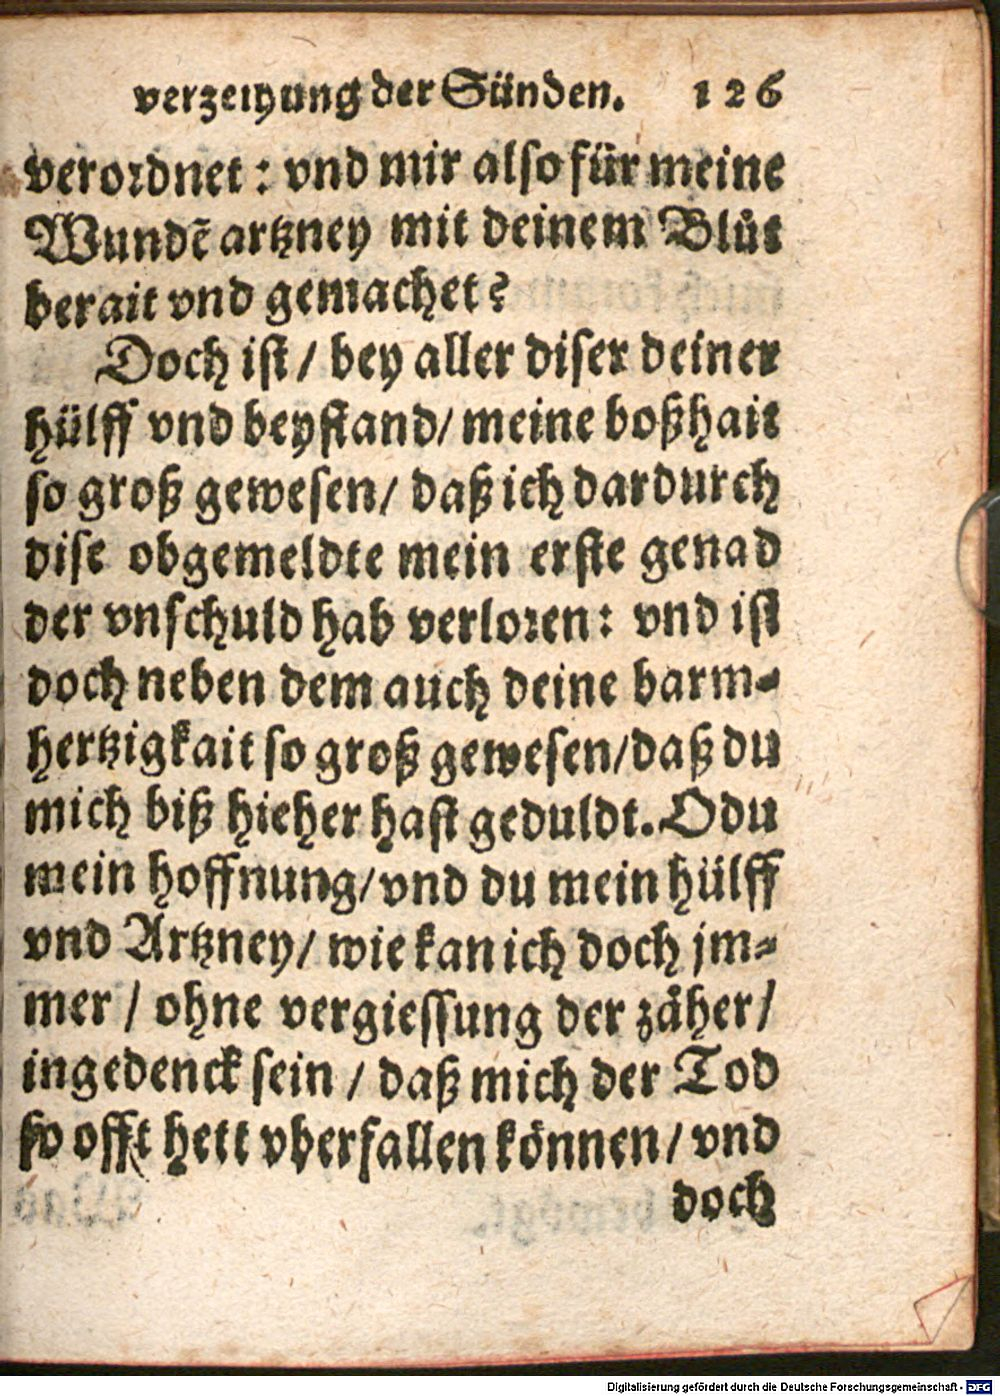 verzeihung der Sünden. 126
verordnet: vnd mir also für meine
Wundẽ artzney mit deinem Blůt
berait vnd gemachet?
Doch ist / bey aller diser deiner
hülff vnd beystand/ meine boßhait
so groß gewesen/ daß ich dardurch
dise obgemeldte mein erste genad
der vnschuld hab verloren: vnd ist
doch neben dem auch deine barm-
hertzigkait so groß gewesen/daß du
mich biß hieher hast geduldt. O du
mein hoffnung/vnd du mein hülff
vnd Artzney/ wie kan ich doch jm-
mer / ohne vergiessung der zåher/
ingedenck sein / daß mich der Tod
so offt hett vberfallen können/ vnd
doch
Digitalisierung gefördert durch die Deutsche Forschungsgemeinschaft - DFG